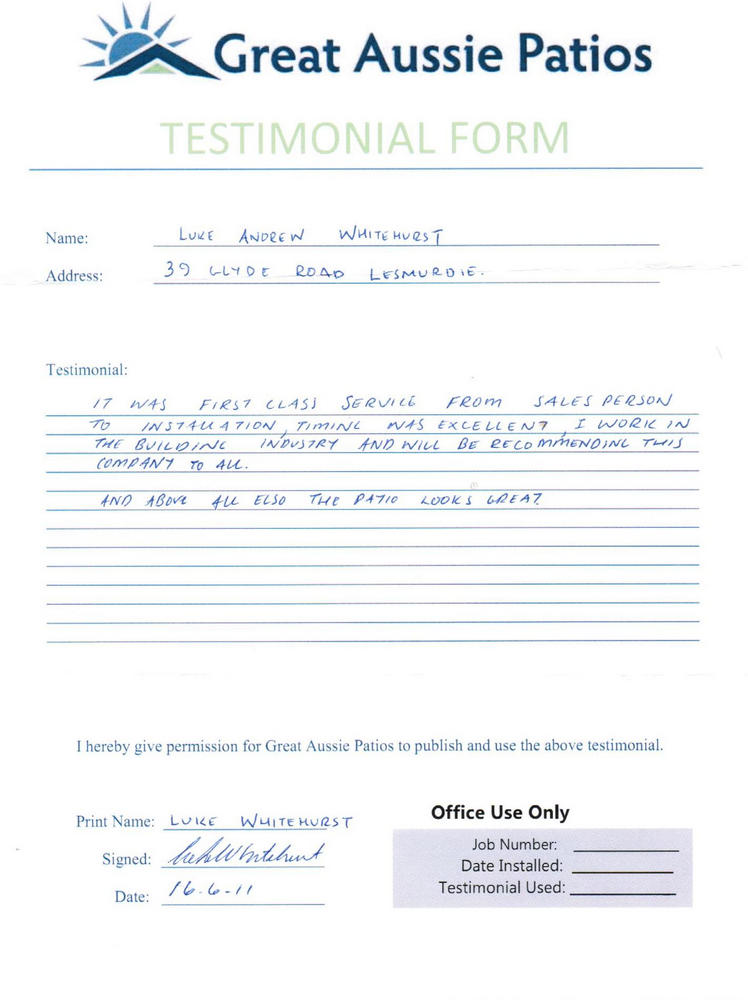 Great Aussie Patios
TESTIMONIAL FORM
Name: LUKE ANDREW WHITEHURST
Address: 39 CLYDE ROAD LESMURDIE.
Testimonial:
IT WAS FIRST CLASS SERVICE FROM SALES PERSON
TO INSTALLATION, TIMING WAS EXCELLENT, I WORK IN
THE BUILDING INDUSTRY AND WILL BE RECOMMENDING THIS
COMPANY TO ALL.
AND ABOVE ALL ELSO THE PATIO LOOKS GREAT
I hereby give permission for Great Aussie Patios to publish and use the above testimonial.
Print Name: LUKE WHITEHURST
Signed: LukeWhitehurst
Date: 16-6-11
Office Use Only
Job Number:
Date Installed:
Testimonial Used: